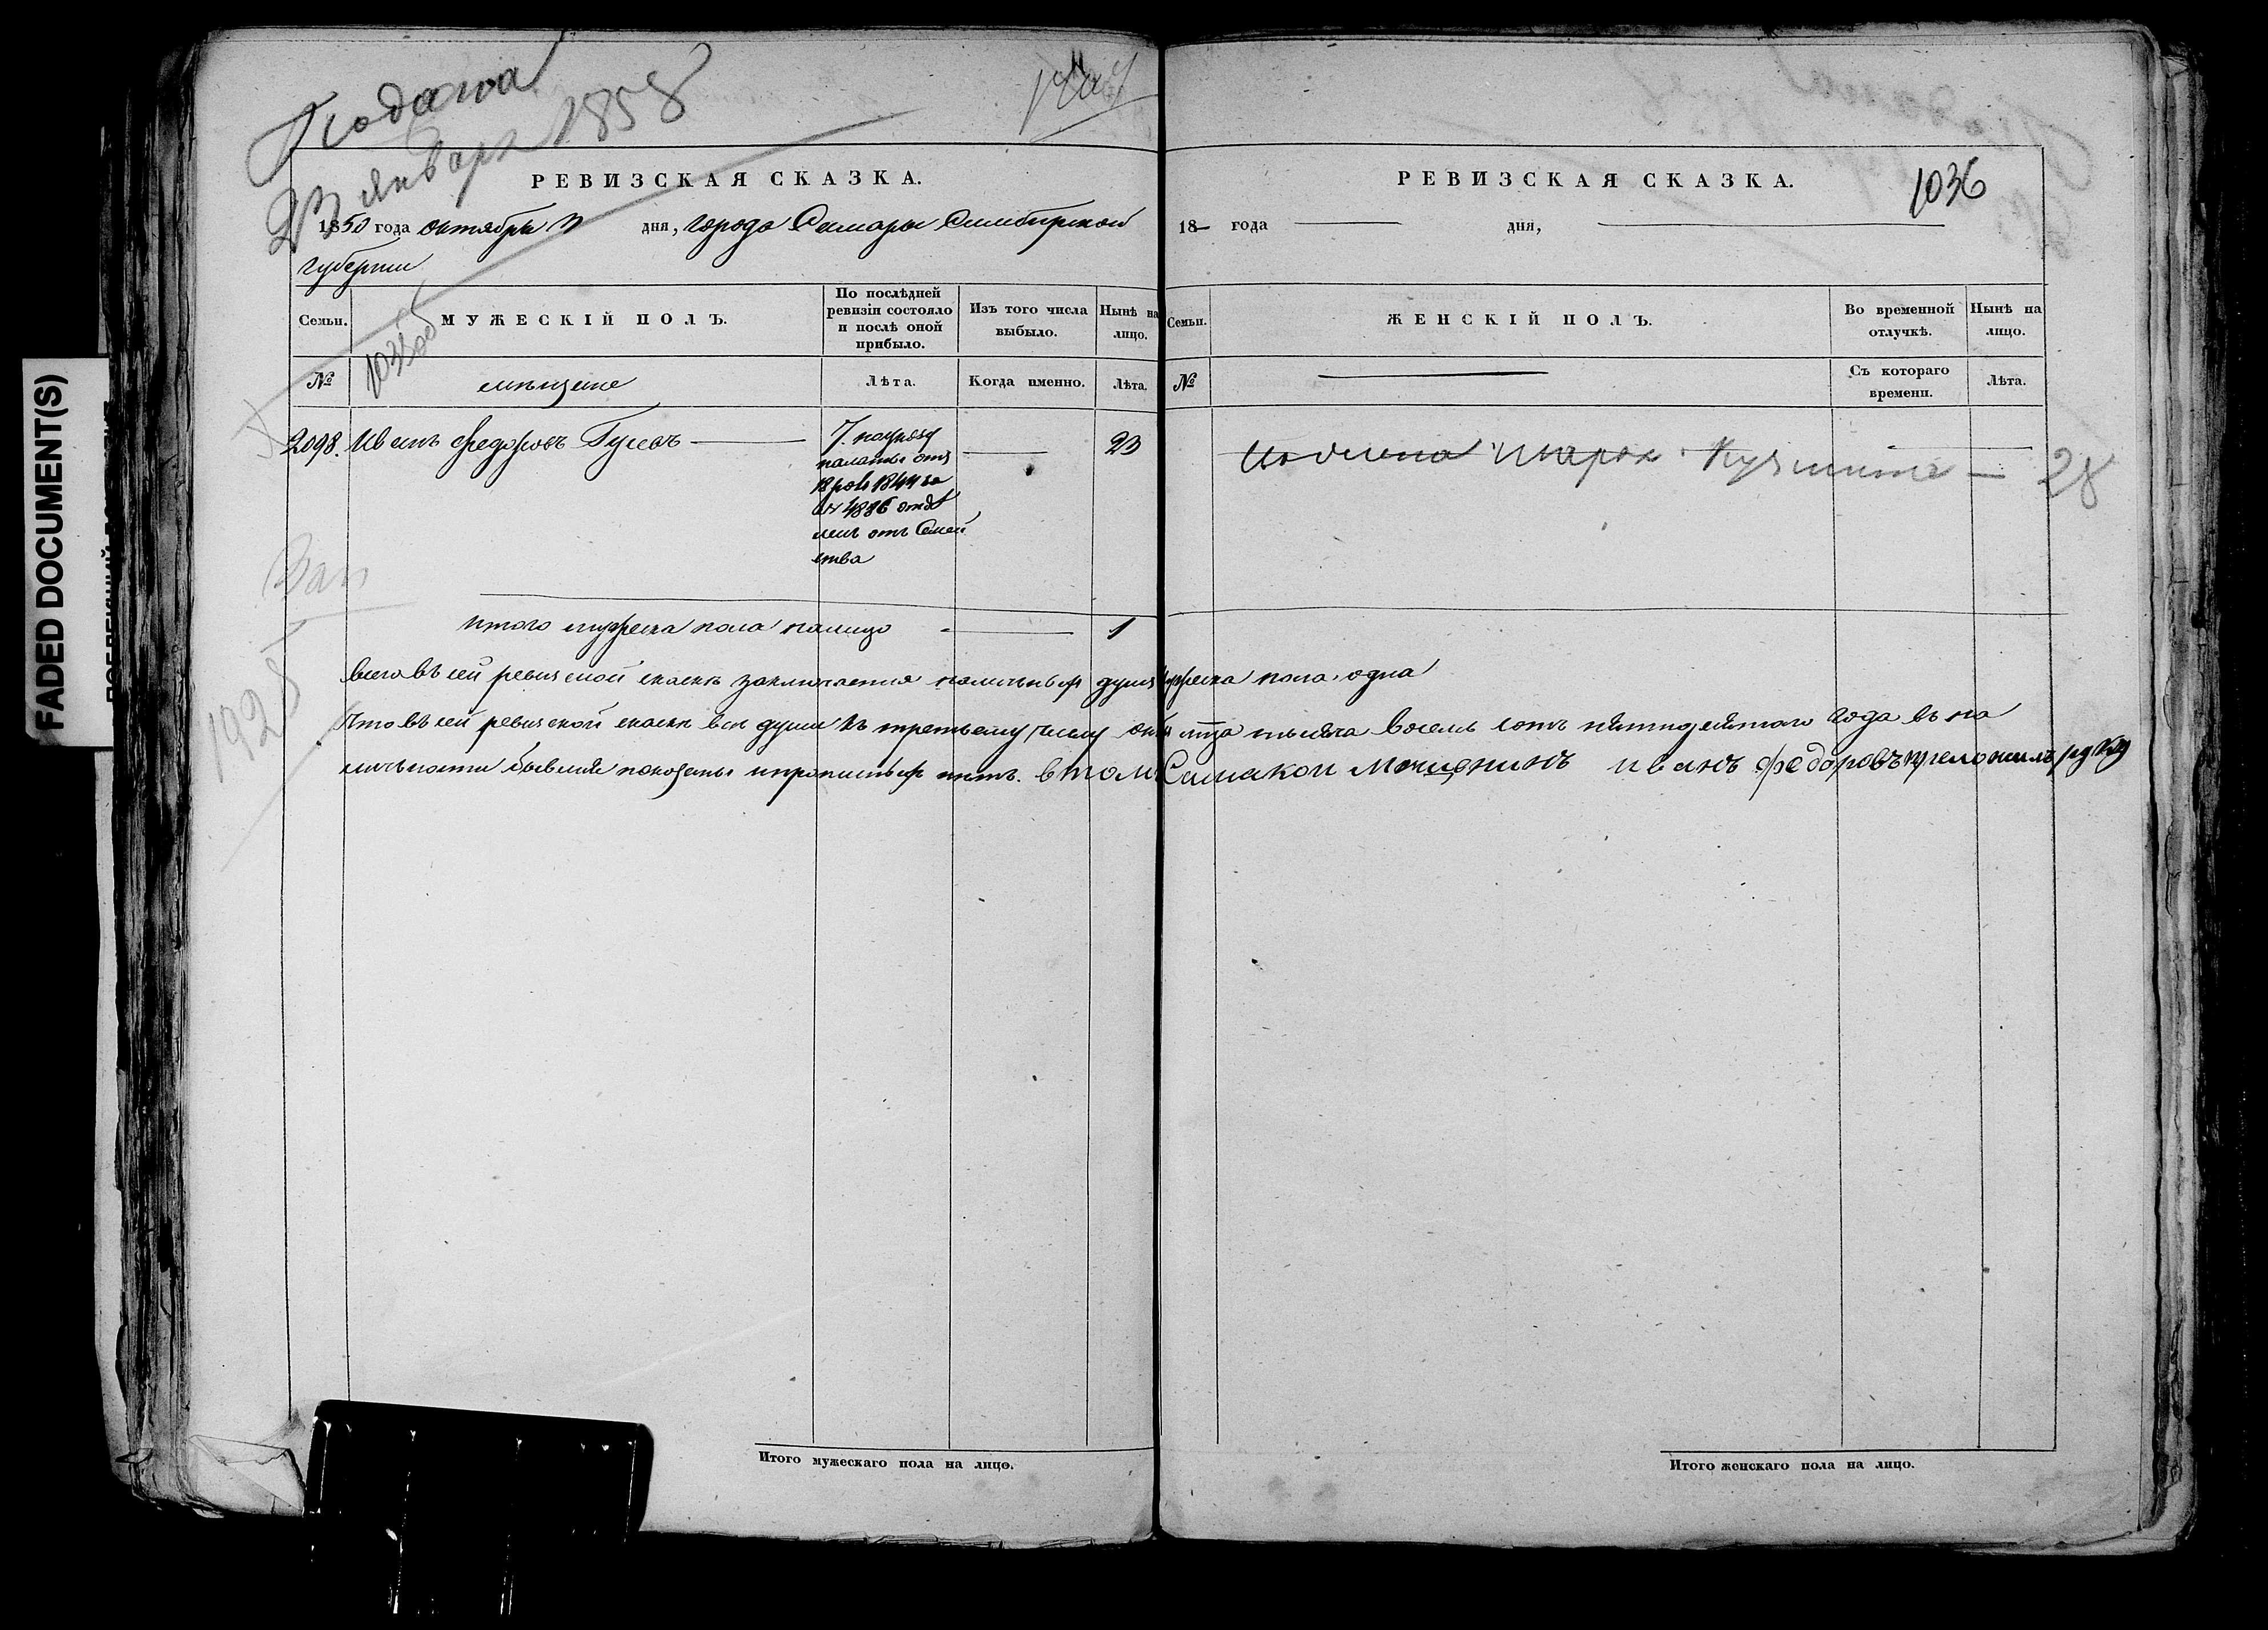 FADED DOCUMENT(S)
Подана
23 января 1858
РЕВИЗСКАЯ СКАЗКА.
1850 года октября 3 дня, города Самары Симбирской
губернии
Семьи.
МУЖЕСКІЙ ПОЛЪ.
По послѣдней
ревизіи состояло
и послѣ оной
прибыло.
Изъ того числа
выбыло.
Нынѣ на
лицо.
№
1035об
мѣщане
Лѣта.
Когда именно.
Лѣта.
2098. Иванъ Федоровъ Гусевъ
7. по указу
палаты отъ
18 1844 за
№ 4886 отдѣ
ленъ отъ Семей
ства
23
Зап
1925
итого мужеска пола налицо 1
Всего въ сей ревиской скаскѣ заключается наличныхъ душъ мужеска пола одна
Что въ сей ревиской скаскѣ всѣ души къ третьему числу окт мца тысяча восемь сотъ пятидесятаго года въ на
личности бывшія показаны и прописныхъ нѣтъ. втом Самакои Мочщонинъ иванъ федоровъ приложилъ руку
Итого мужескаго пола на лицо.
РЕВИЗСКАЯ СКАЗКА.
1036
18— года дня,
Семьи.
ЖЕНСКІЙ ПОЛЪ.
Во временной
отлучкѣ.
Нынѣ на
лицо.
№
Съ котораго
времени.
Лѣта.
Марья Кузмина — 28
Итого женскаго пола на лицо.